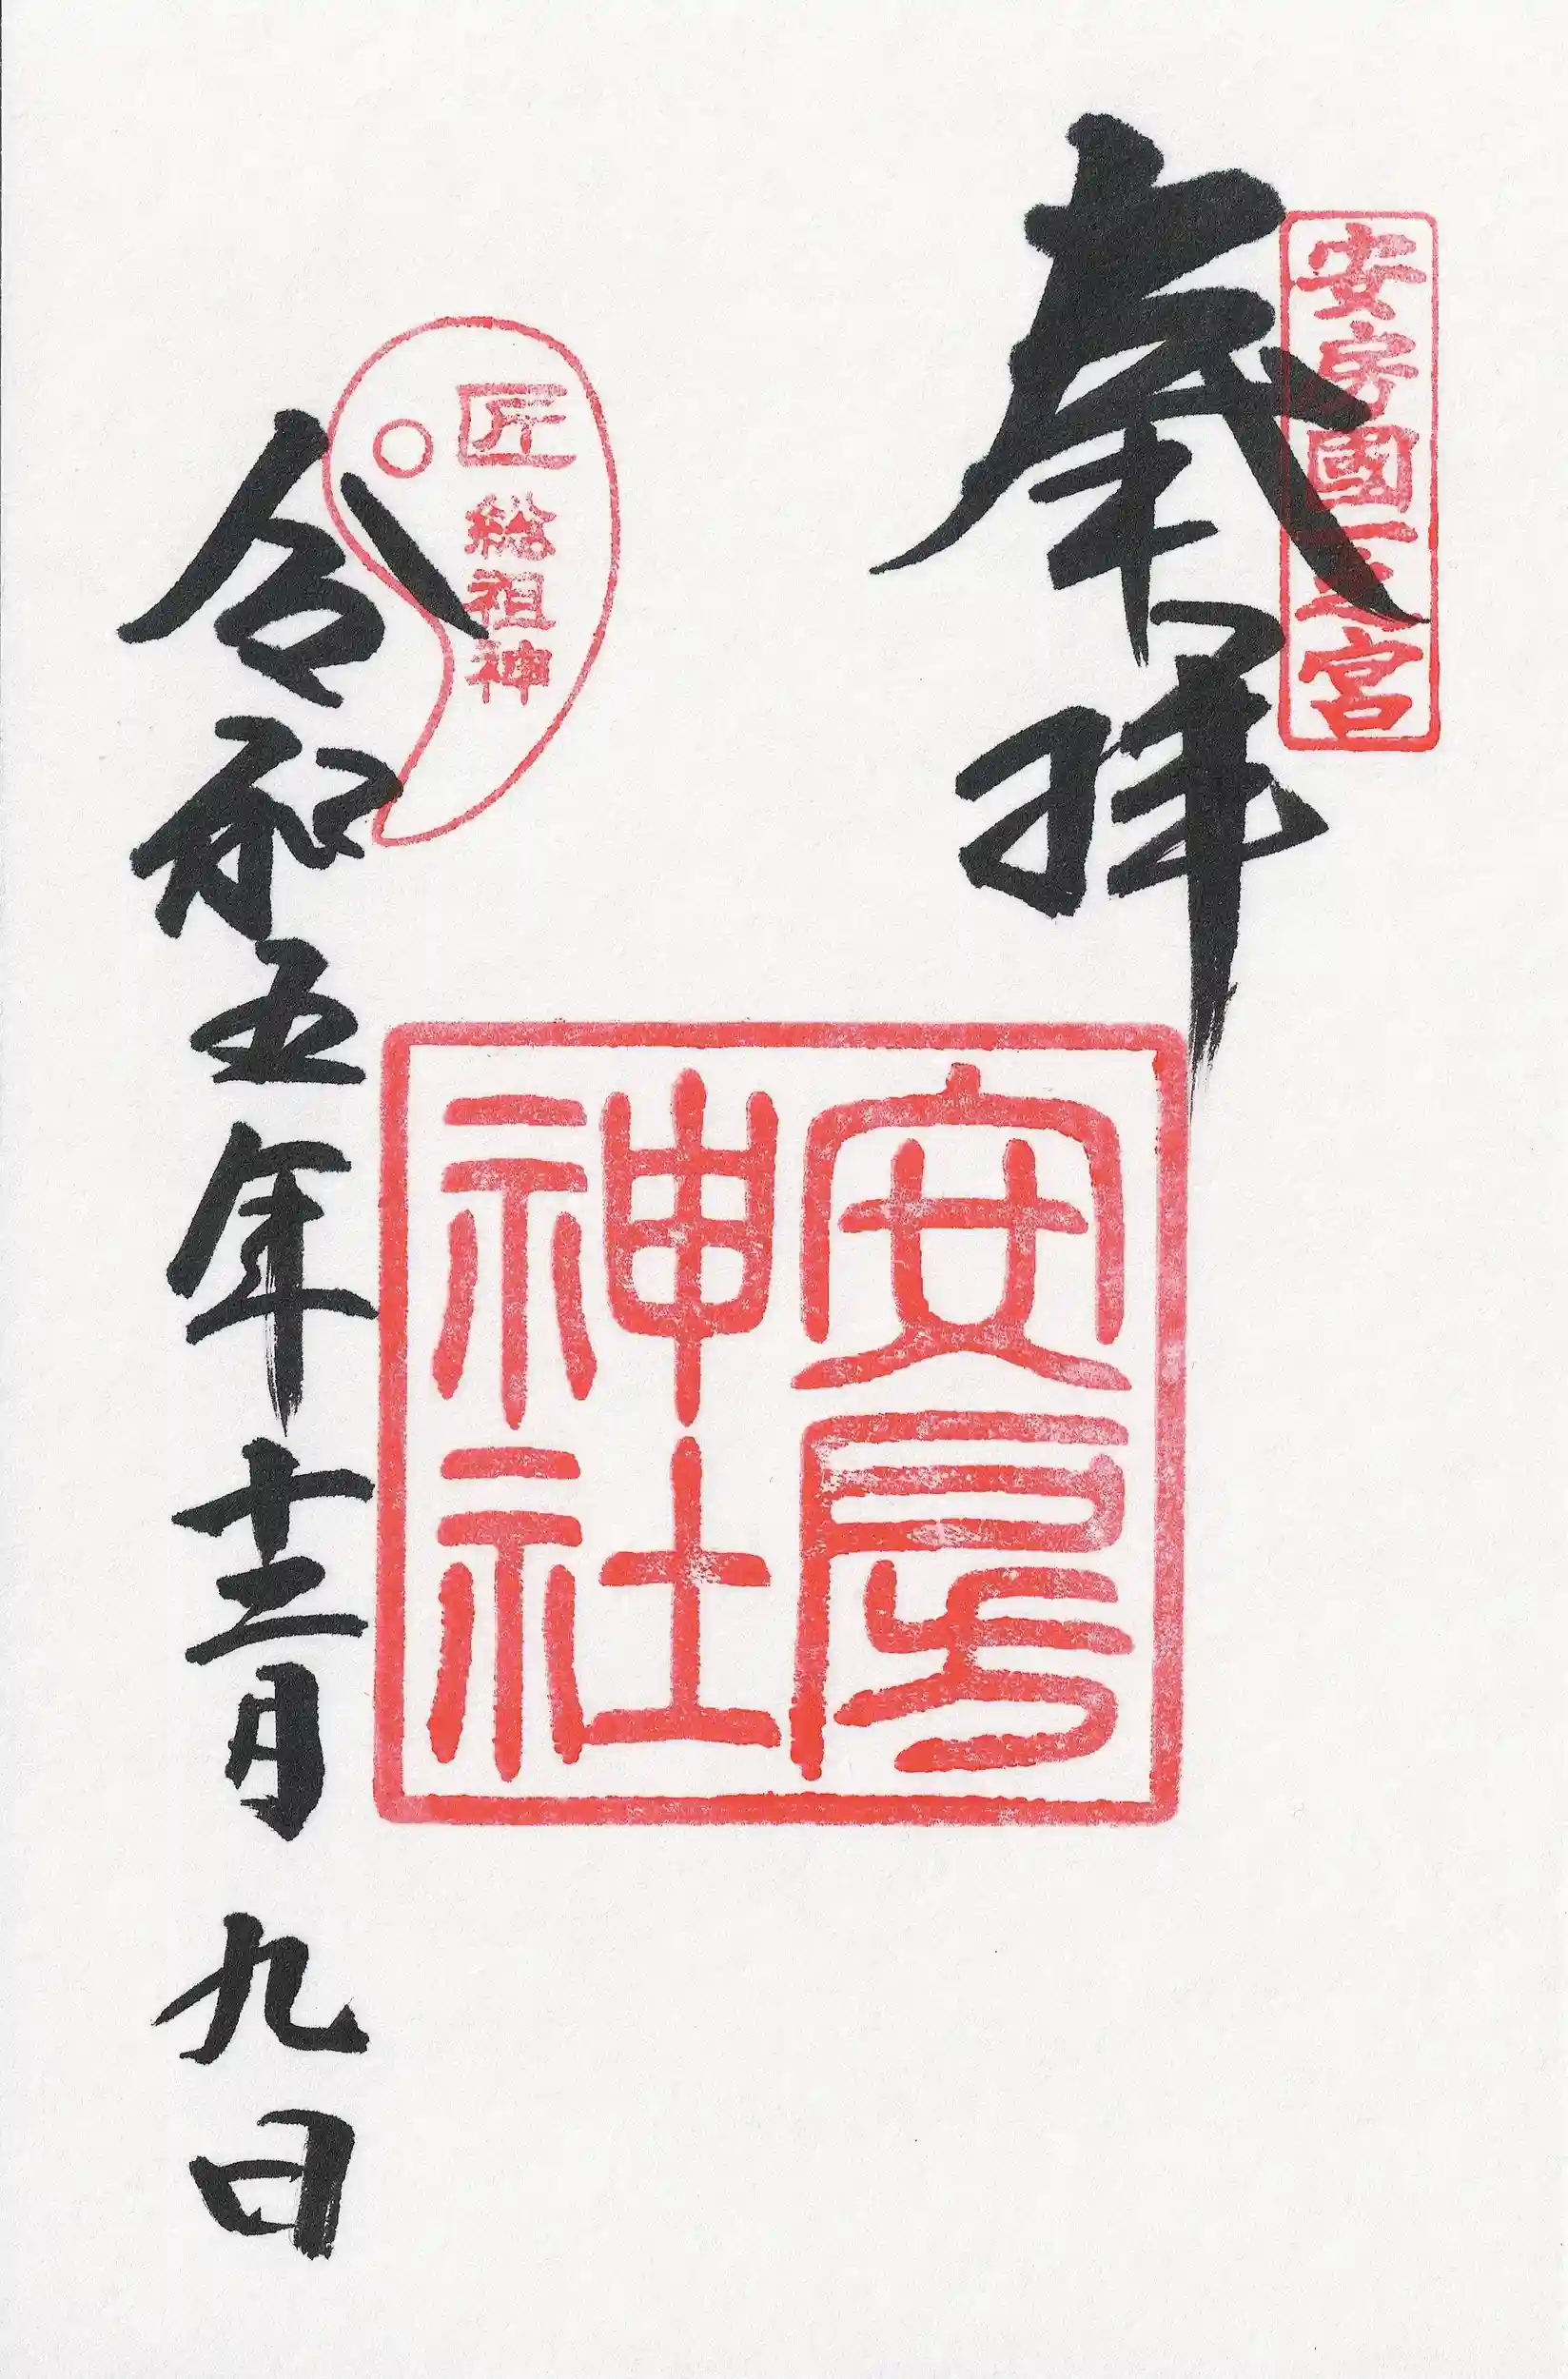 安房國一之宮
奉拝
安房
神社
匠総祖神
令和五年十二月九日